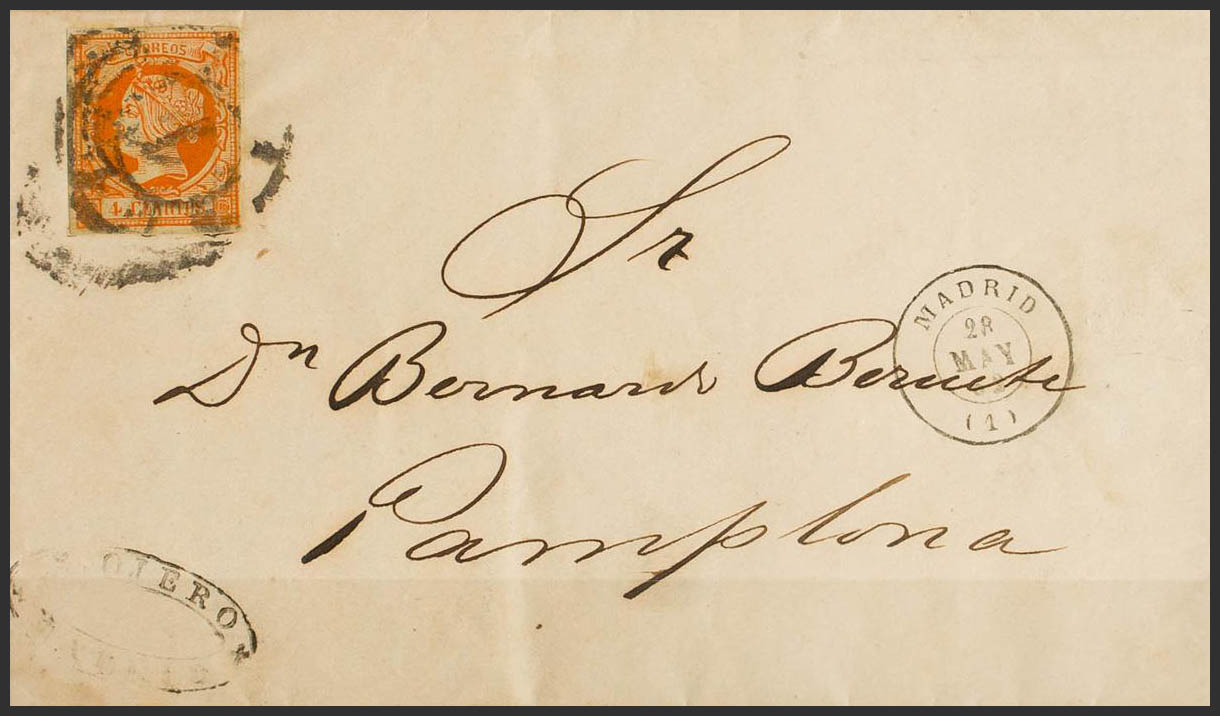 CORREOS
4 CUARTOS
Sr
Dn Bernardo Beruete
Pamplona
MADRID
28
MAY
(1)